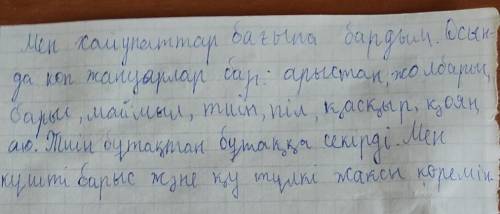 Мен хайуанаттар бағына бардым. Осын-
да коп жануарлар бар: арыстан, жолбарыс,
барыс, маймыл, тиін, піл, қасқыр, қоян,
аю. Тиін бұтақтан бұтаққа секірді. Мен
күшті барыс және қу түлкі жаксы көремін.